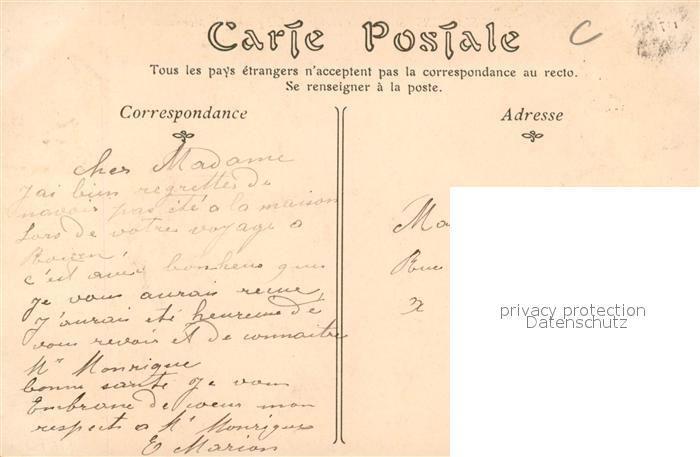 Carte Postale
C
Tous les pays étrangers n'acceptent pas la correspondance au recto.
Se renseigner à la poste.
Correspondance
cher Madame
J'ai bien regrettés de
n'avoir pas été a la maison
Lors de votres voyage a
Rouen
c'est avec bonheur que
Je vous aurais reçue
J'aurais été heureuse de
vous revoir et de connaitre
Mr Monrique
bonne santé Je vous
Embrasse de coeur mon
respects a Mr Monrique
E Marion
Adresse
Ma
Rue
privacy protection
Datenschutz